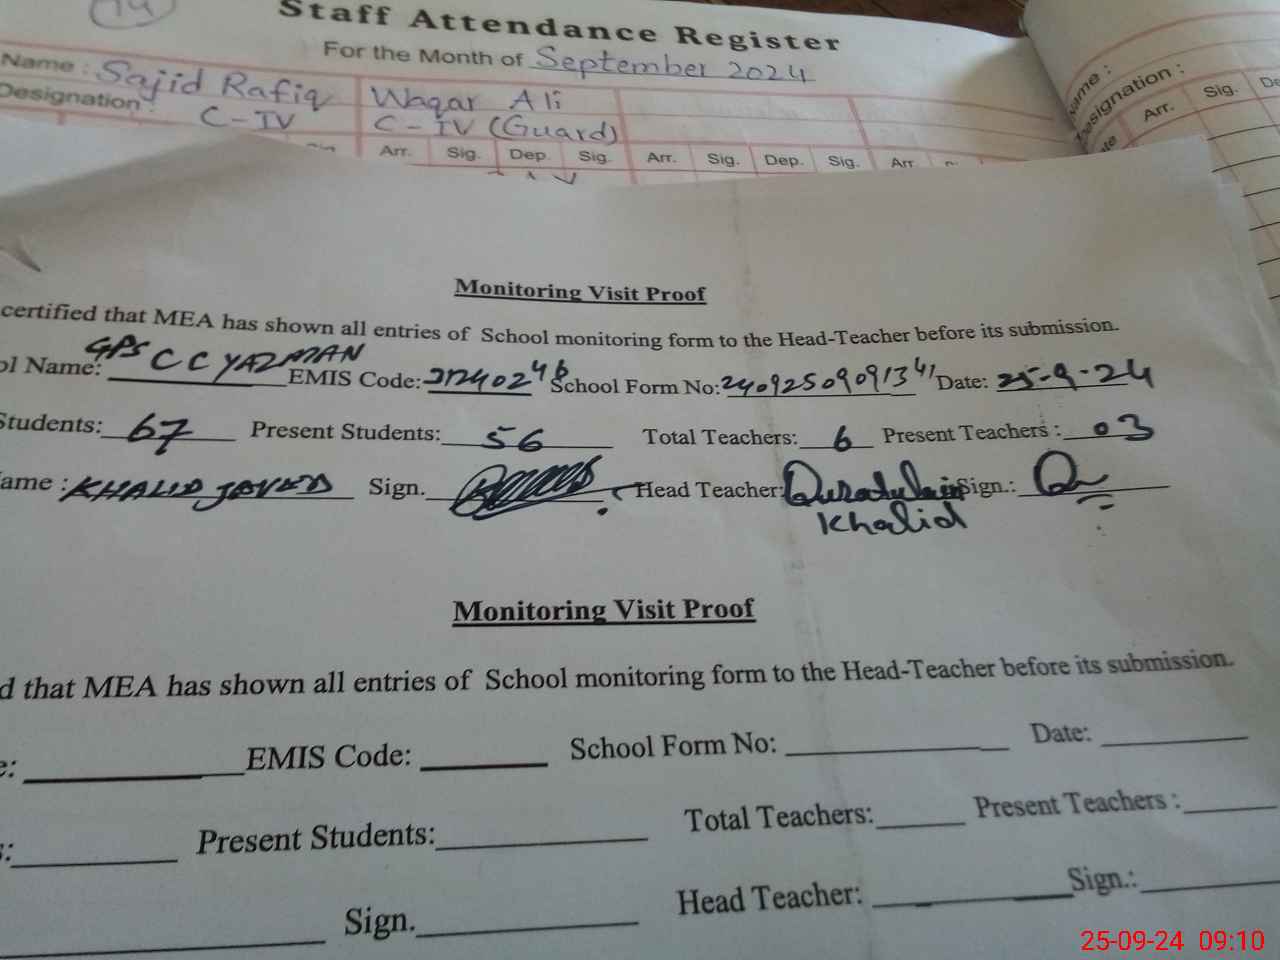 14
Staff Attendance Register
For the Month of September 2024
Name : Sajid Rafiq Waqar Ali
Designation : C-IV C-IV (Guard)
Arr. Sig. Dep. Sig. Arr. Sig. Dep. Sig. Arr.
ame :
esignation :
Arr. Sig. De
Monitoring Visit Proof
certified that MEA has shown all entries of School monitoring form to the Head-Teacher before its submission.
ol Name: GPS CC YAZMAN EMIS Code: 31240246 School Form No: 24092509091341 Date: 25-9-24
Students: 67 Present Students: 56 Total Teachers: 6 Present Teachers : 03
ame : KHALID JAVED Sign. Head Teacher: Quratulain Sign.:
Khalid
Monitoring Visit Proof
d that MEA has shown all entries of School monitoring form to the Head-Teacher before its submission.
e: EMIS Code: School Form No: Date:
s: Present Students: Total Teachers: Present Teachers :
Sign. Head Teacher: Sign.:
25-09-24 09:10